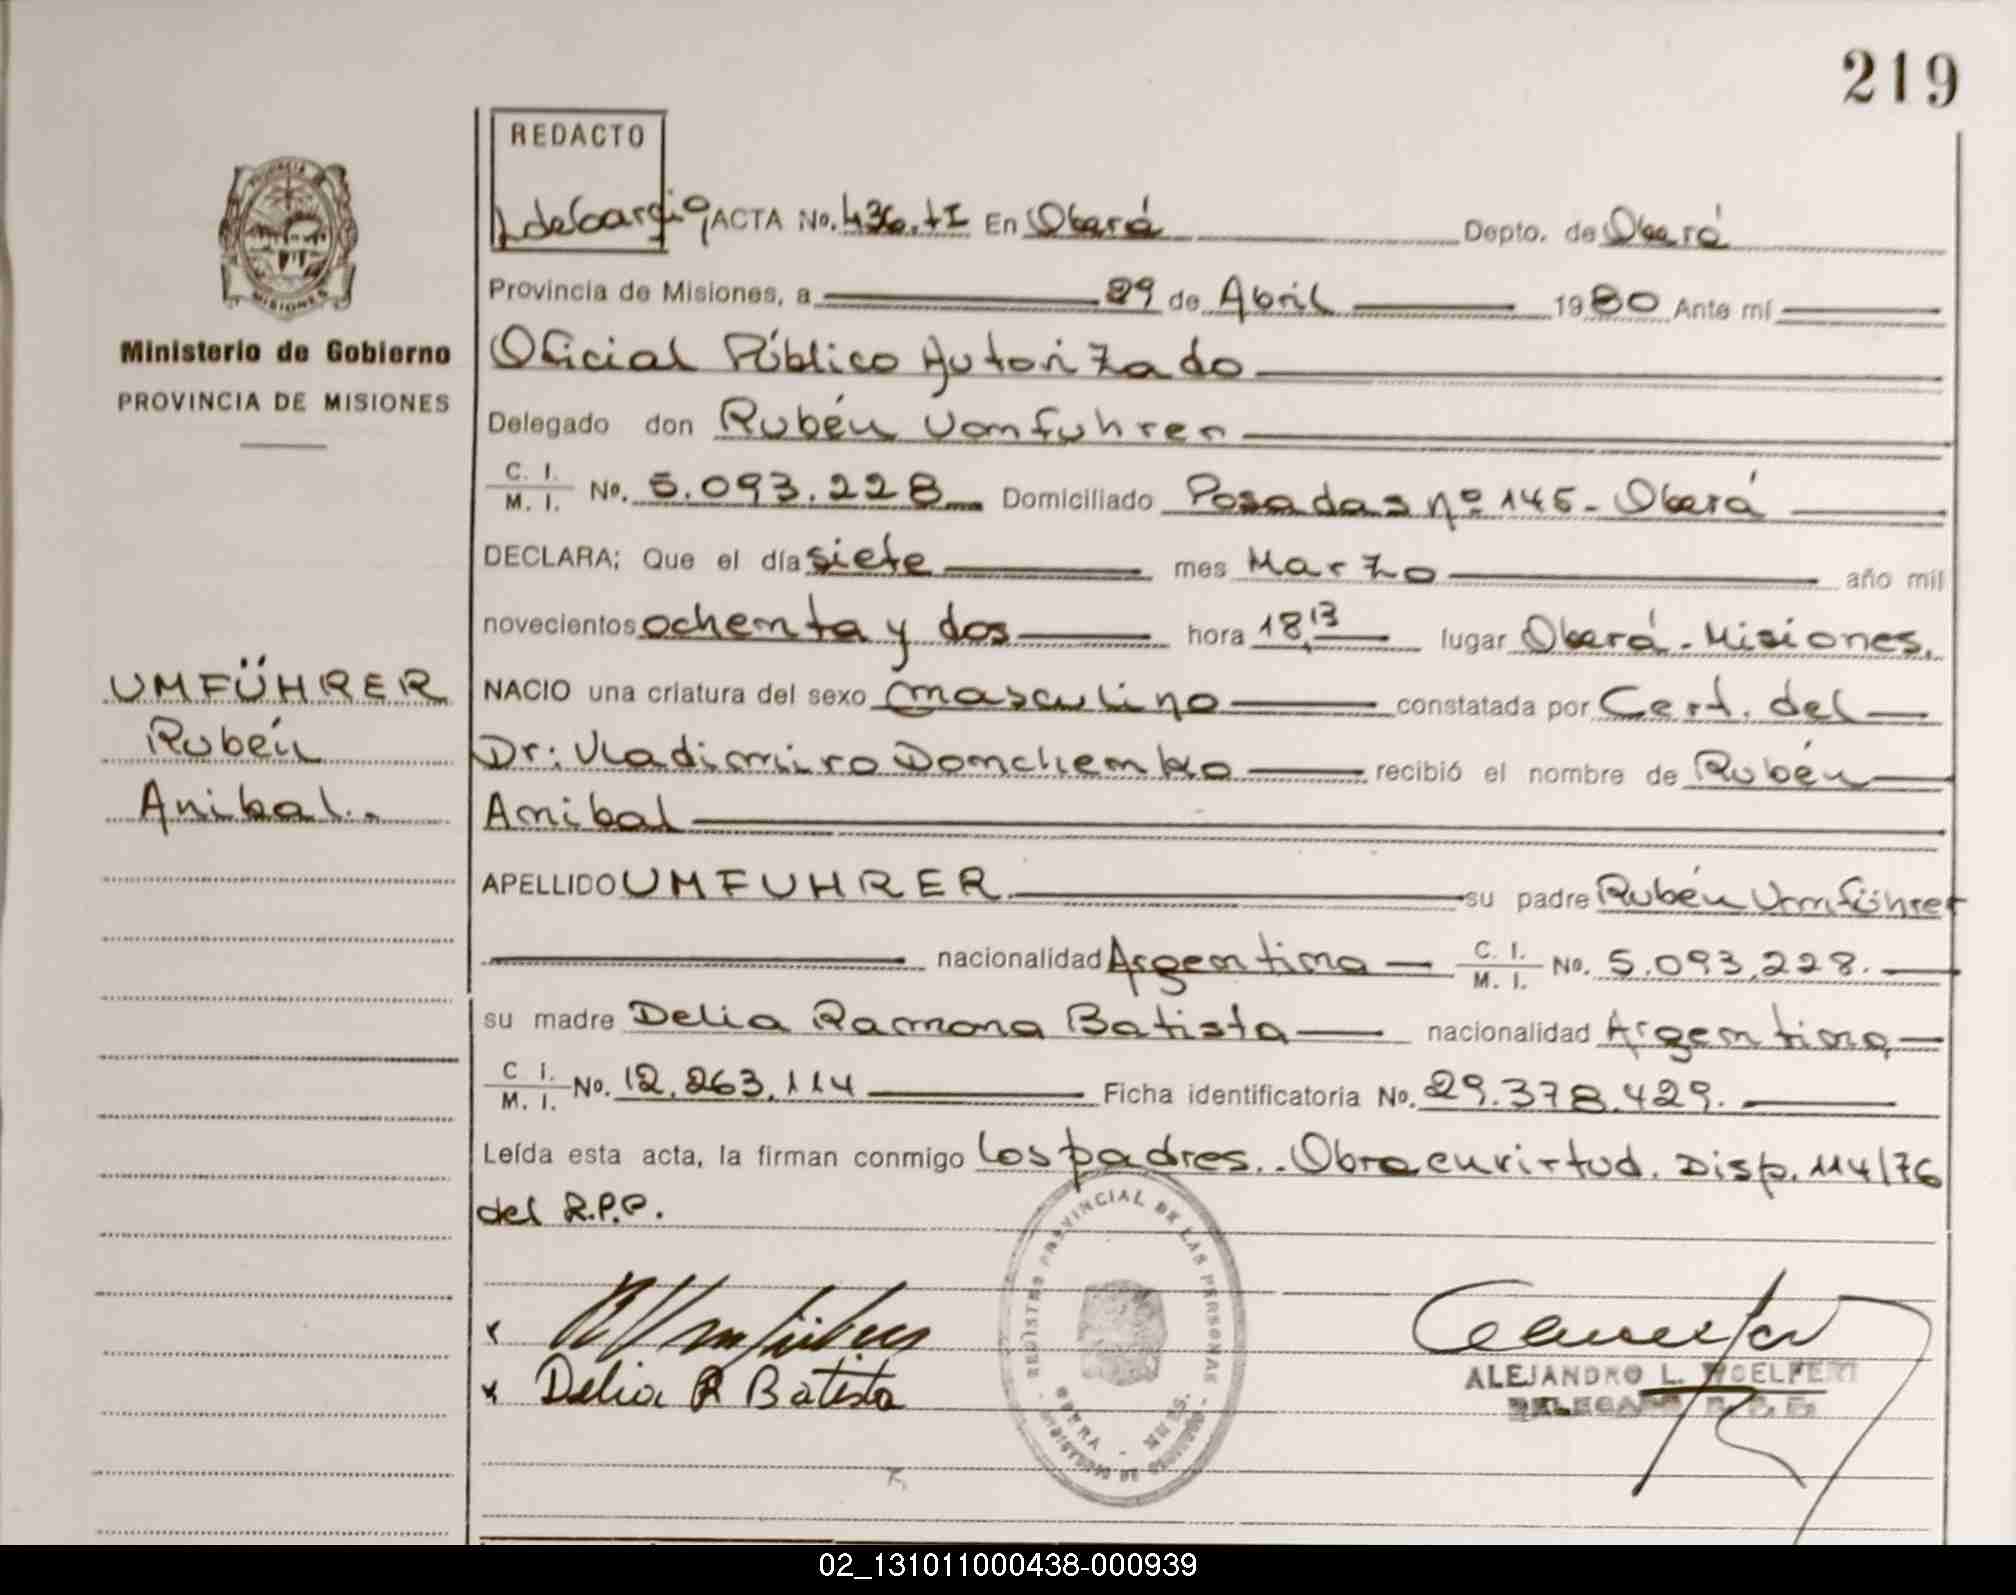 219
REDACTO
ACTA No. 436. tI En Oberá Depto. de Oberá
Provincia de Misiones, a 29 de Abril 1980 Ante mí
Oficial Público Autorizado
Ministerio de Gobierno
PROVINCIA DE MISIONES
Delegado don Rubén Umfuhrer
C. I. M. I. No. 5.093.228 Domiciliado Posadas nº 145 - Oberá
DECLARA; Que el día siete mes Marzo año mil
novecientos ochenta y dos hora 18,13 lugar Oberá - Misiones.
UMFÜHRER
Rubén
Anibal.-
NACIO una criatura del sexo masculino constatada por Cert. del
Dr: Vladimiro Domchenko recibió el nombre de Rubén
Anibal
APELLIDO UMFUHRER su padre Rubén Umführer
nacionalidad Argentina C. I. M. I. No. 5.093.228.
su madre Delia Ramona Batista nacionalidad Argentina
C. I. M. I. No. 12.263.114 Ficha identificatoria No. 29.378.429.
Leída esta acta, la firman conmigo los padres.- Obra en virtud. Disp. 114/76
del R.P.P.
REGISTRO PROVINCIAL DE LAS PERSONAS
OBERA - MNES.
Delia R Batista
ALEJANDRO L.
DELEGADO
02_131011000438-000939